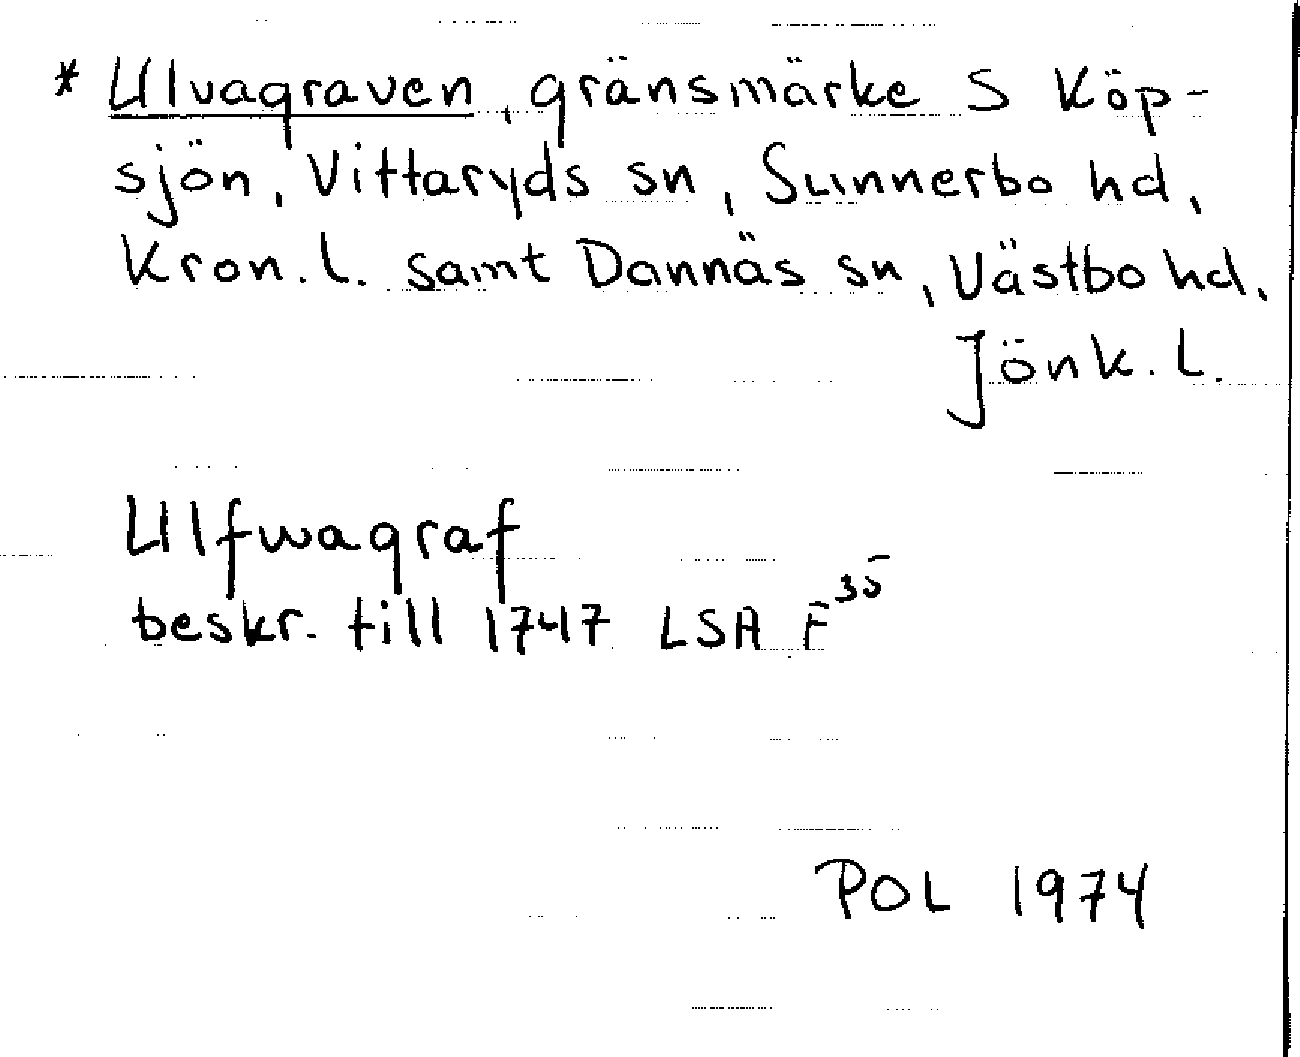 * Ulvagraven, gränsmärke S Köp-
sjön, Vittaryds sn, Sunnerbo hd,
Kron. l. samt Dannäs sn, Västbo hd,
Jönk. l.
Ulfwagraf
beskr. till 1747 LSA F³⁵
POL 1974